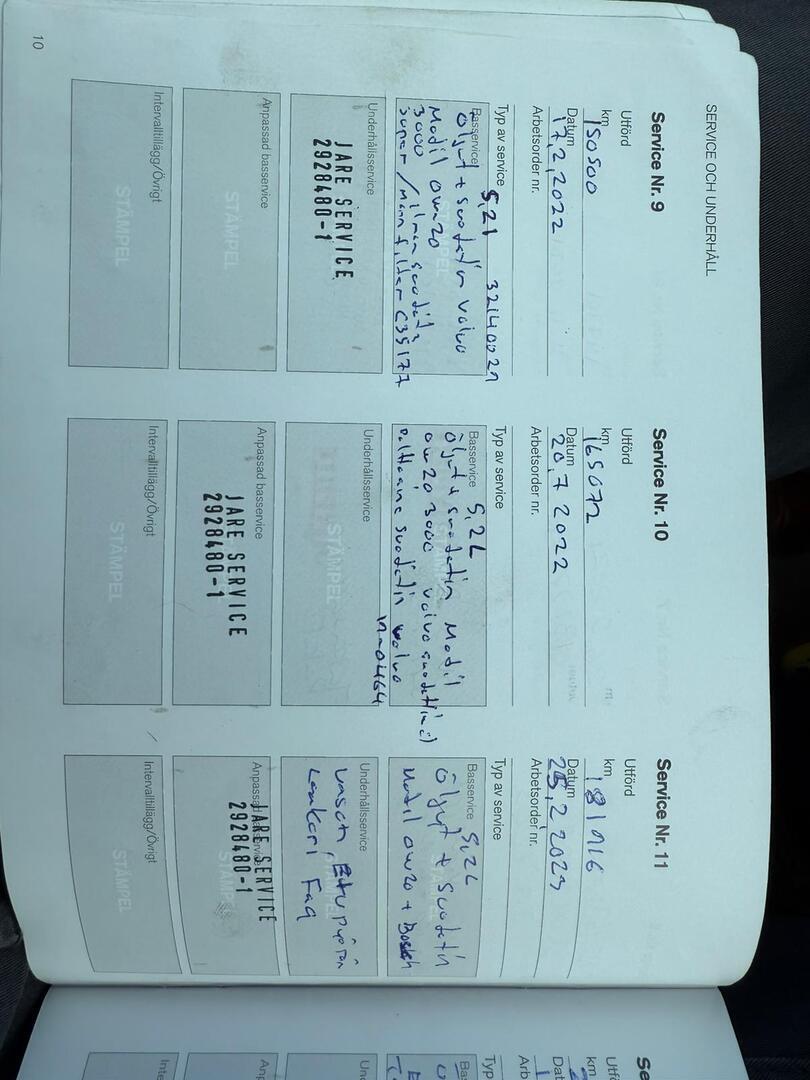 SERVICE OCH UNDERHÅLL
Service Nr. 9
Utförd
km 150500
Datum 17,2,2022
Arbetsorder nr.
Typ av service
5,2L 32140029
Basservice
Öljyt + suodatin volvo
Mobil 0w20
3000 ilman suodatin
super / Mann filter C35177
Underhållsservice
JARE SERVICE
2928480-1
Anpassad basservice
STÄMPEL
Intervalltillägg/Övrigt
STÄMPEL
Service Nr. 10
Utförd
km 165072
Datum 20,7 2022
Arbetsorder nr.
Typ av service
Basservice 5,2L
Öljyt + suodatin Mobil
0w20 3000 volvo
suodatin volvo
Underhållsservice
STÄMPEL
Anpassad basservice
JARE SERVICE
2928480-1
Intervalltillägg/Övrigt
STÄMPEL
Service Nr. 11
Utförd
km 181916
Datum 25,2,2023
Arbetsorder nr.
Typ av service
Basservice 5,2L
Öljyt + suodatin
Mobil 0w20 + Bosch
Underhållsservice
vasen Etupyörän
Laakeri Fag
Anpassad basservice
JARE SERVICE
2928480-1
Intervalltillägg/Övrigt
STÄMPEL
10
km